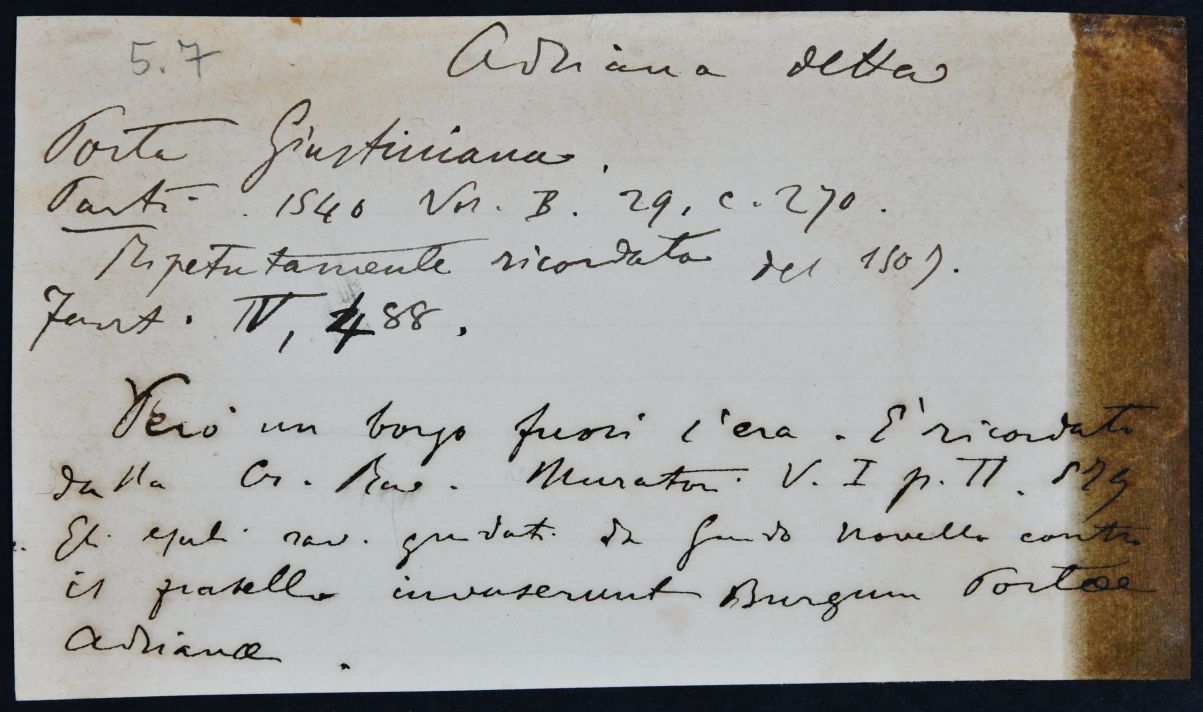 5.7
Adriana detta
Porta Giustiniana.
Parti. 1540 Vol. B. 29, c. 270.
Ripetutamente ricordata del 1507.
Fant. IV, 488.
Però un borgo fuori c'era. E' ricordato
dalla Cr. Rav. Muratori V. I p. II. 579
Gli esuli rav. guidati da Guido Novello contro
il fratello invaserunt Burgum Portae
Adrianae.